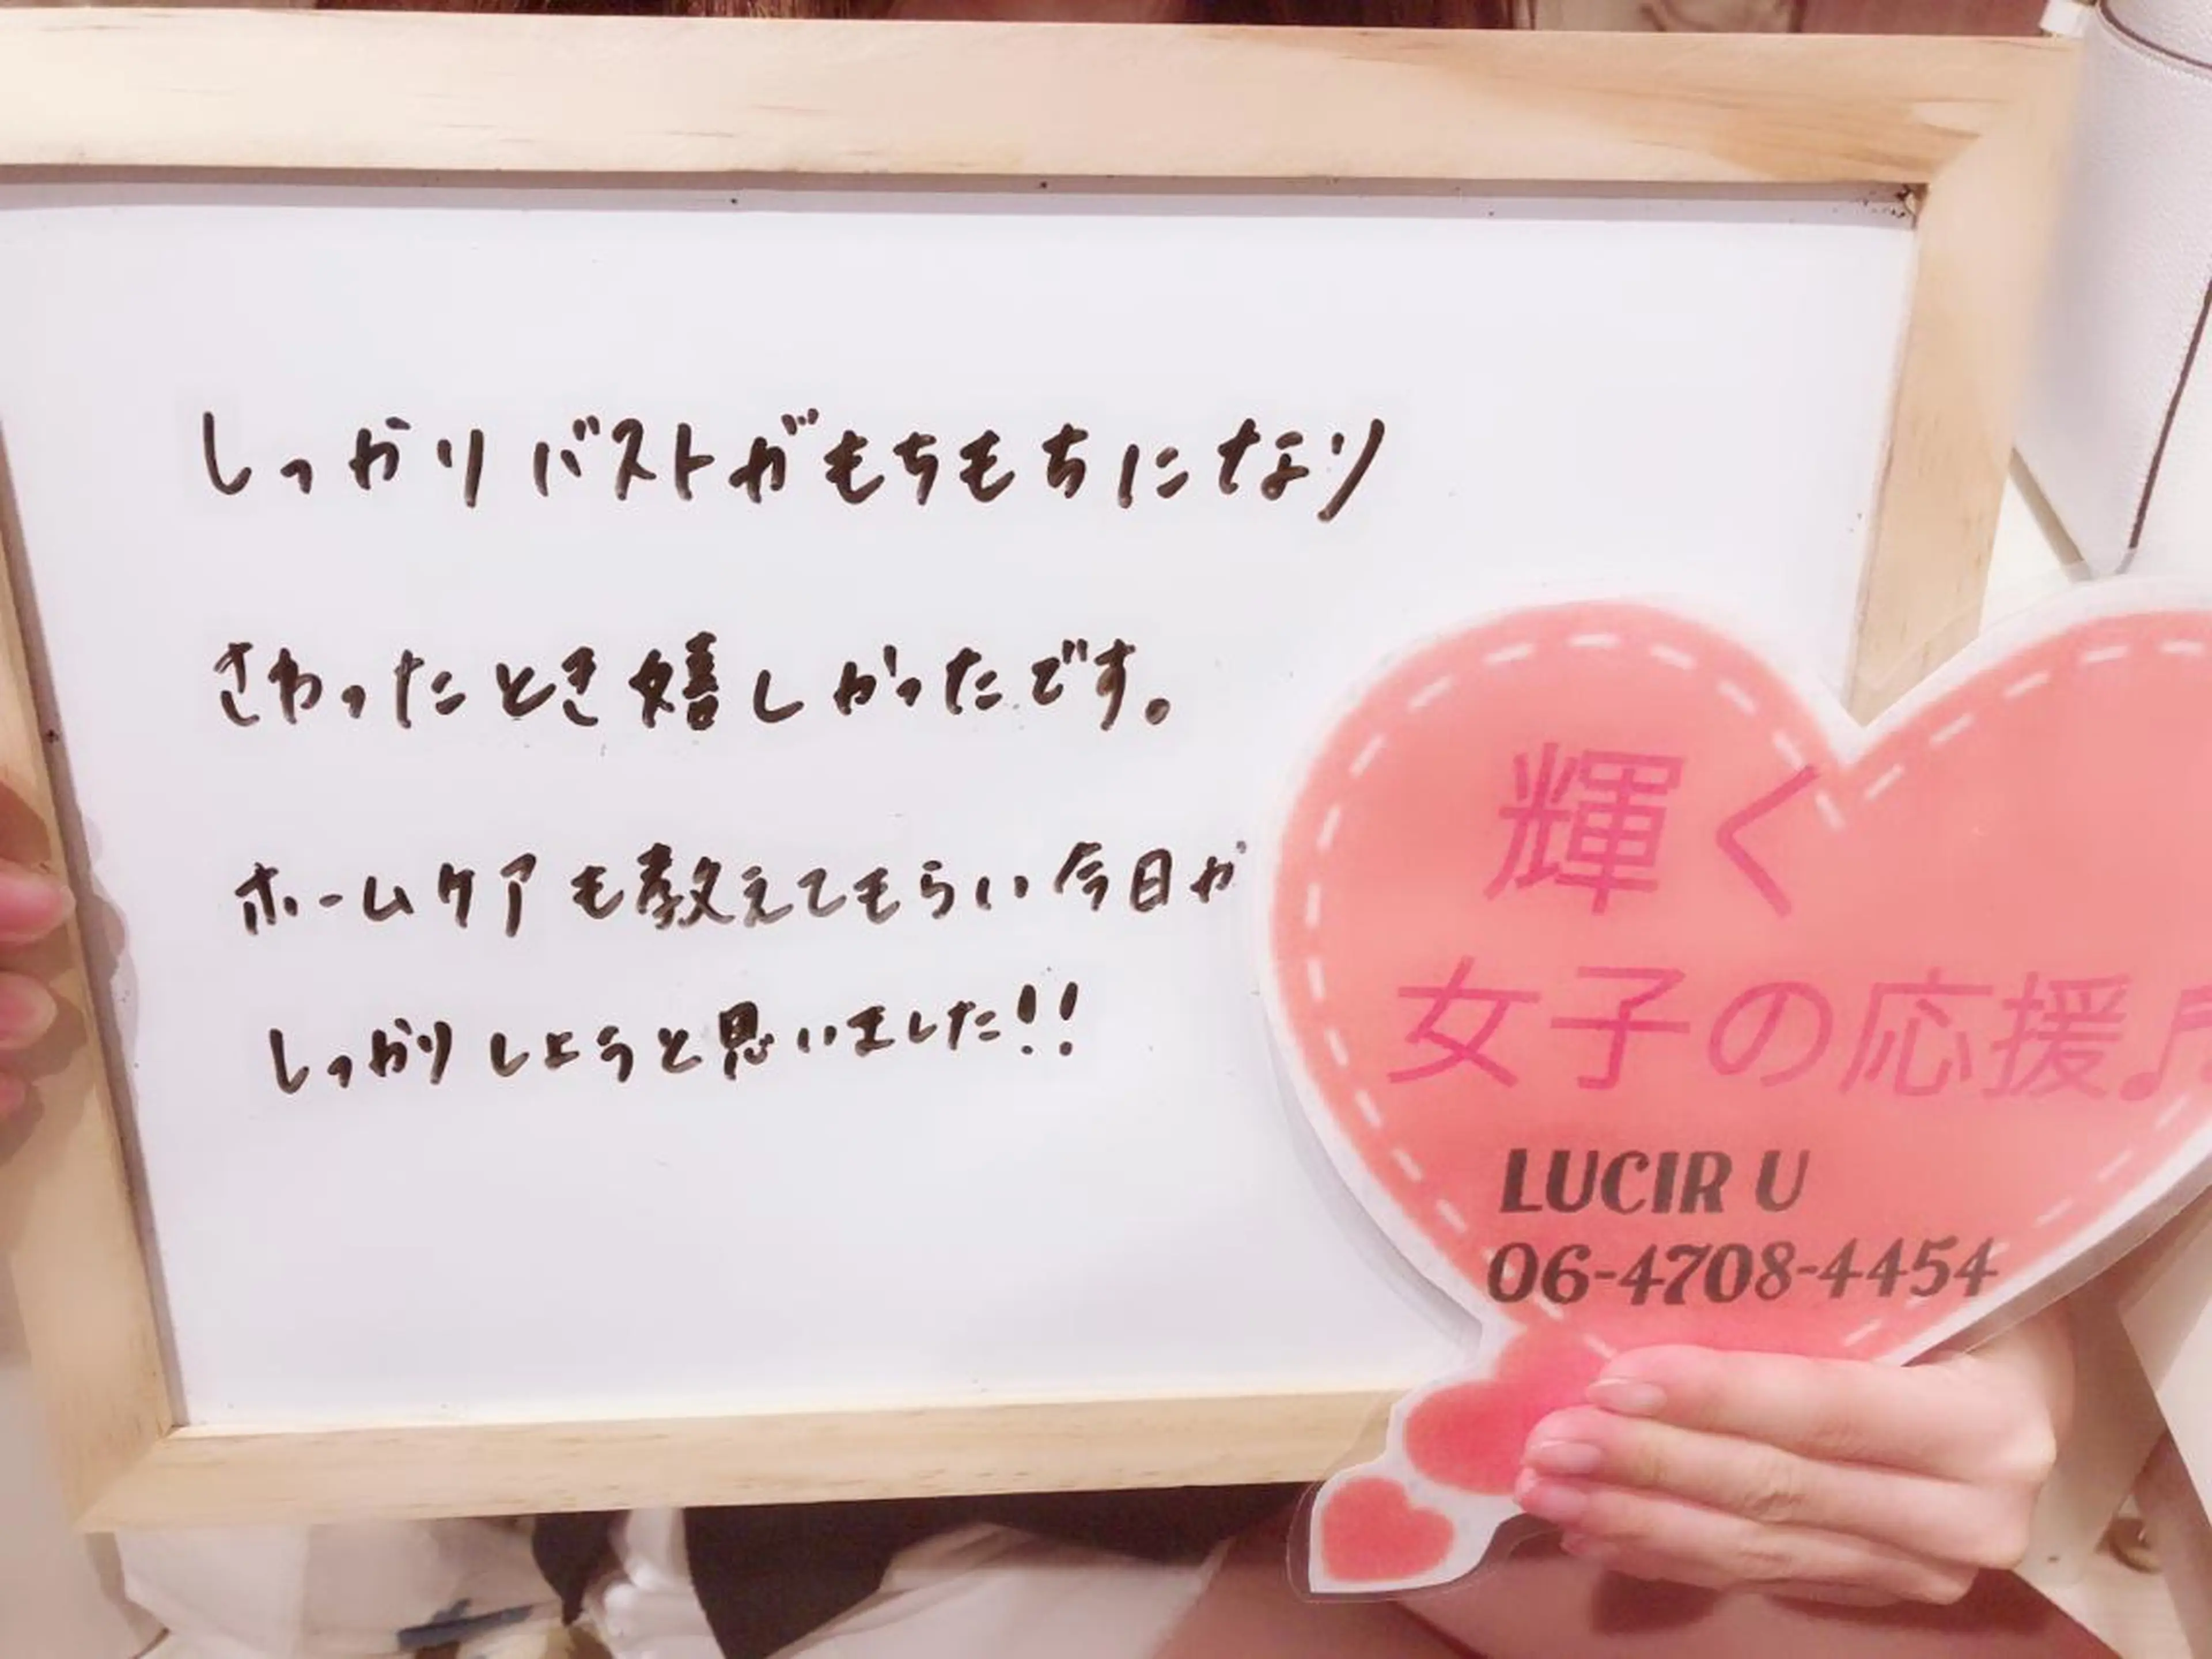 しっかりバストがもちもちになり
さわったとき嬉しかったです。
ホームケアも教えてもらい今日か
しっかりしようと思いました!!
輝く
女子の応援♬
LUCIR U
06-4708-4454